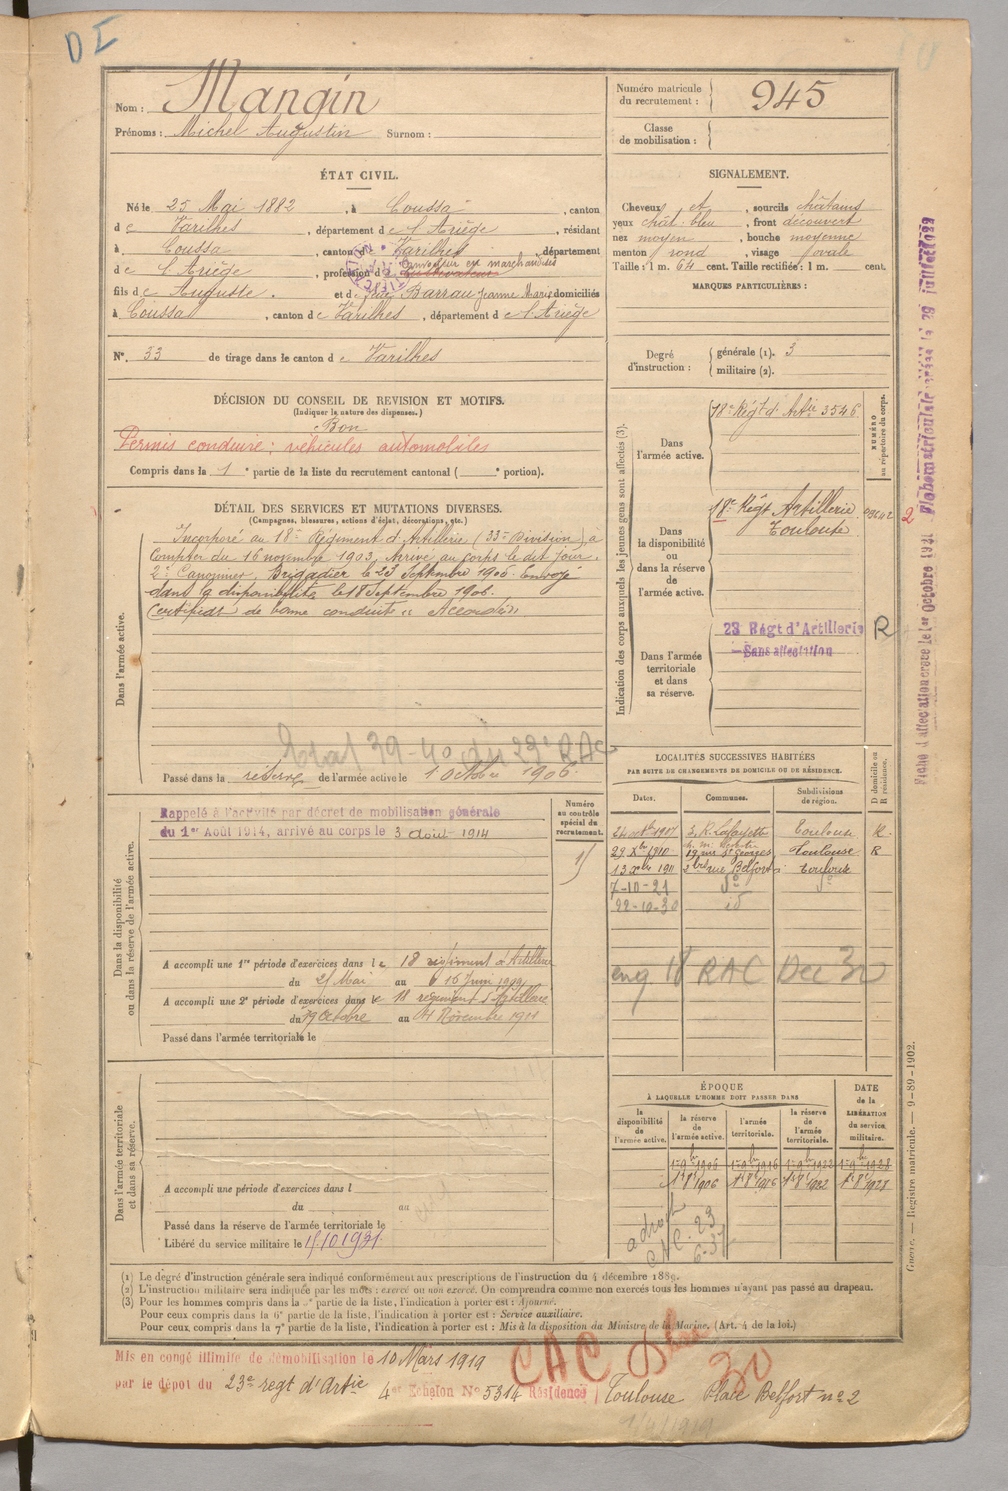 DI
Nom : Mangin
Prénoms : Michel Augustin Surnom :
Numéro matricule du recrutement : 945
Classe de mobilisation :
ÉTAT CIVIL.
Né le 25 Mai 1882, à Coussa, canton
de Varilhes, département de l'Ariège, résidant
à Coussa, canton de Varilhes, département
de l'Ariège, profession de cultivateur en marchandises
fils de Auguste et de Barrau Jeanne Marie domiciliés
à Coussa, canton de Varilhes, département de l'Ariège
N°. 33 de tirage dans le canton de Varilhes
SIGNALEMENT.
Cheveux et, sourcils châtains
yeux chât. bleu, front découvert
nez moyen, bouche moyenne
menton rond, visage ovale
Taille : 1 m. 64 cent. Taille rectifiée : 1 m. cent.
MARQUES PARTICULIÈRES :
Degré d'instruction : générale (1). 3
militaire (2).
DÉCISION DU CONSEIL DE REVISION ET MOTIFS.
(Indiquer la nature des dispenses.)
Bon
Permis conduire : véhicules automobiles
Compris dans la 1e partie de la liste du recrutement cantonal ( e portion).
DÉTAIL DES SERVICES ET MUTATIONS DIVERSES.
(Campagnes, blessures, actions d'éclat, décorations, etc.)
Dans l'armée active.
Incorporé au 18e Régiment d'Artillerie (33e Division), à
Compter du 16 novembre 1903, Arrivé au corps le dit jour.
2e Canonnier. Brigadier le 23 Septembre 1905. Envoyé
dans la disponibilité le 18 Septembre 1906.
Certificat de bonne conduite "Accordé"
Etat 39-40 du 23e RAC
Passé dans la réserve de l'armée active le 1 Octobre 1906.
Indication des corps auxquels les jeunes gens sont affectés (3).
NUMÉRO au répertoire du corps.
Dans l'armée active.
18e Régt d'Artie 3546
Dans la disponibilité ou dans la réserve de l'armée active.
18e Régt Artillerie
Toulouse
Dans l'armée territoriale et dans sa réserve.
23 Régt d'Artillerie R
Sans affectation
Dans la disponibilité ou dans la réserve de l'armée active.
Rappelé à l'activité par décret de mobilisation générale
du 1er Août 1914, arrivé au corps le 3 août 1914
Numéro au contrôle spécial du recrutement.
A accompli une 1re période d'exercices dans le 18 régiment d'Artillerie
du 21 Mai au 15 Juin 1909
A accompli une 2e période d'exercices dans le 18 régiment d'Artillerie
du 19 Octobre au 4 Novembre 1911
Passé dans l'armée territoriale le
LOCALITÉS SUCCESSIVES HABITÉES
PAR SUITE DE CHANGEMENTS DE DOMICILE OU DE RÉSIDENCE.
Dates. Communes. Subdivisions de région. D domicile ou R résidence.
R. Lafayette Toulouse R.
29 Xbre 1910 19 rue St Georges Toulouse R
13 1911 2 rue Belfort Toulouse
7-10-21 do do
22-10-30 id
eng 18 RAC Dec 30
Dans l'armée territoriale et dans sa réserve.
A accompli une période d'exercices dans l
du au
Passé dans la réserve de l'armée territoriale le
Libéré du service militaire le 15.10.1931.
ÉPOQUE
À LAQUELLE L'HOMME DOIT PASSER DANS
la disponibilité de l'armée active.
la réserve de l'armée active.
l'armée territoriale.
la réserve de l'armée territoriale.
DATE de la LIBÉRATION du service militaire.
1er 9bre 1906 1er 9bre 1916 1er 9bre 1922 1er 9bre 1928
1er 8bre 1906 1er 8bre 1916 1er 8bre 1922 1er 8bre 1928
(1) Le degré d'instruction générale sera indiqué conformément aux prescriptions de l'instruction du 4 décembre 1889.
(2) L'instruction militaire sera indiquée par les mots : exercé ou non exercé. On comprendra comme non exercés tous les hommes n'ayant pas passé au drapeau.
(3) Pour les hommes compris dans la 5e partie de la liste, l'indication à porter est : Ajourné.
Pour ceux compris dans la 6e partie de la liste, l'indication à porter est : Service auxiliaire.
Pour ceux compris dans la 7e partie de la liste, l'indication à porter est : Mis à la disposition du Ministre de la Marine. (Art. 4 de la loi.)
Mis en congé illimité de démobilisation le 10 Mars 1919
par le dépôt du 23e regt d'Artie 4er Echelon No 5314 Résidence Toulouse Place Belfort no 2
CAC
30
Guerre. — Registre matricule. — 9-89-1902.